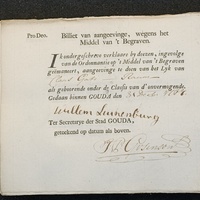 Pro Deo. Billiet van aangeevinge, wegens het
Middel van 't Begraven.
Ik ondergeschreven verklaare by deezen, ingevolge
van de Ordonnantie op 't Middel van 't Begraven
geëmaneert, aangevinge te doen van het Lyk van
als gehoorende onder de Classis van d'onvermogende.
Gedaan binnen GOUDA den
Willem Luinenburg
Ter Secretarye der Stad GOUDA,
geteekend op datum als boven.